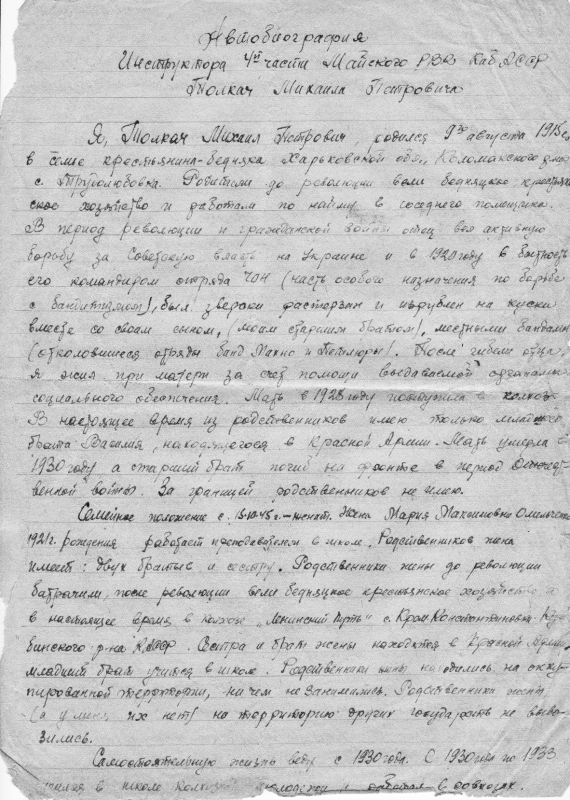 Автобиография
Инструктора 4й части Майского РВВ КабАССР
Толкач Михаила Петровича
Я, Толкач Михаил Петрович, родился 9го августа 1915
в семье крестьянина-бедняка Харьковской обл., Коломакского
с. Трудолюбовка. Родители до революции вели бедняцкое
хозяйство и работали по найму в соседнего помещика.
В период революции и гражданской войны отец вел активную
борьбу за Советскую власть на Украине и в 1920 году в бытность
его командиром отряда ЧОН (часть особого назначения по борьбе
с бандитизмом), был зверски растерзан и изрублен на куски
вместе со своим сыном, (моим старшим братом), местными бандами
(отколовшиеся отряды банд Махно и Петлюры). После гибели отца,
я жил при матери за счет помощи выдаваемой органами
социального обеспечения. Мать в 1928 году поступила в колхоз
В настоящее время из родственников имею только младшего
брата Василия, находящегося в Красной Армии. Мать умерла в
1930 году а старший брат погиб на фронте в период Отечест-
венной войны. За границей родственников не имею.
Семейное положение с. 15-10-45 г. – женат. Жена Мария Максимовна
1921 г. рождения работает преподавателем в школе. Родственников жена
имеет: двух братьев и сестру. Родственники жены до революции
батрачили, после революции вели бедняцкое крестьянское хозяйство и
в настоящее время в колхозе „Ленинский путь" с.
р-на Сестра и брат жены находятся в Красной Армии
младший брат учится в школе. Родственники жены находились на окку-
пированной территории, ни чем не занимались. Родственники жены
(а у меня их нет) на территорию других государств не выво-
зились.
Самостоятельную жизнь веду с 1930 года. С 1930 года по 1933
в школе молодежи и работал в совхозах.